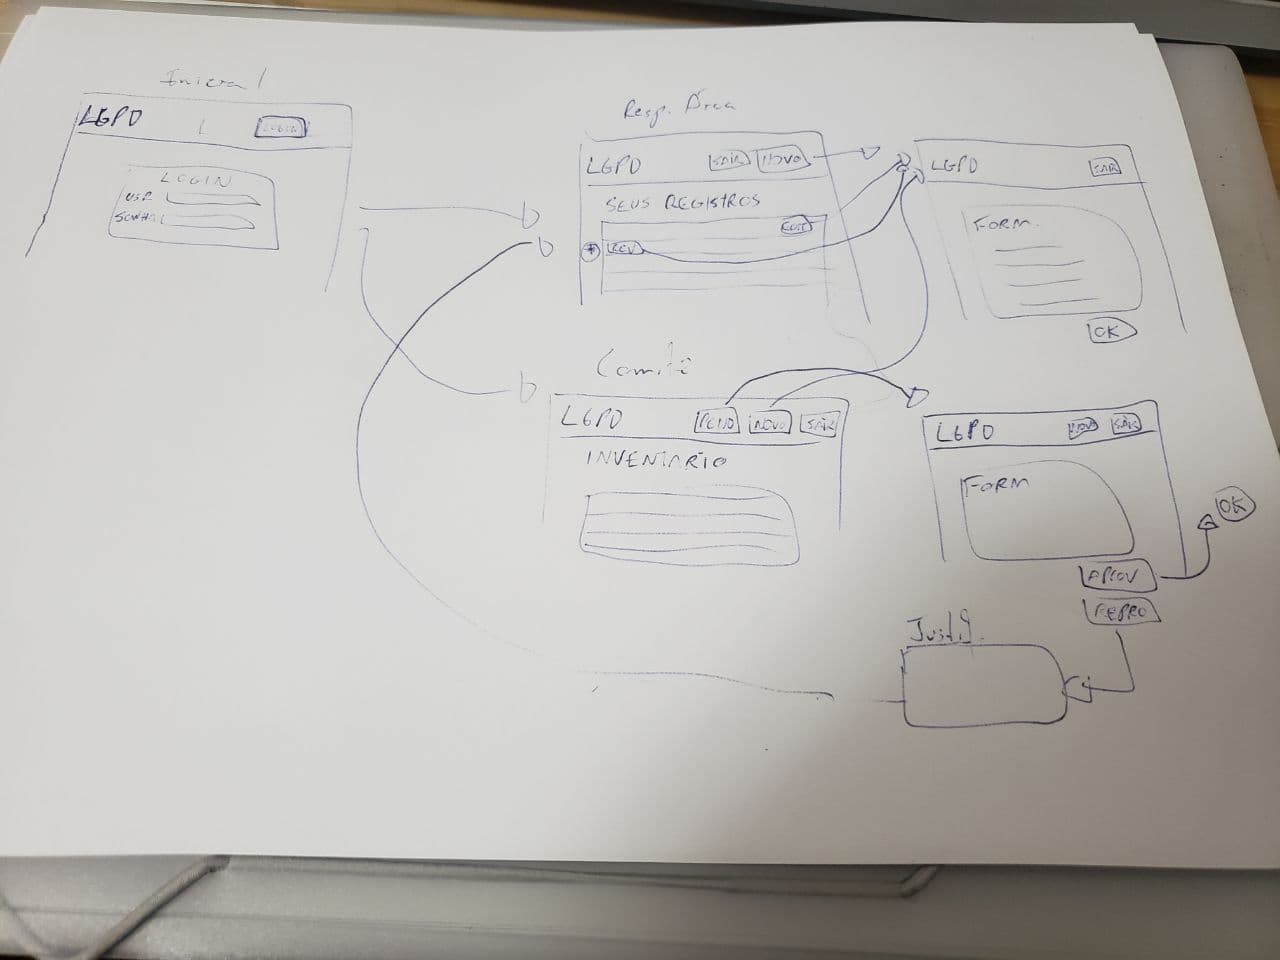 Inicial
LGPD
LOGIN
LOGIN
USR
SENHA
Resp. Área
LGPD SAIR NOVO
SEUS REGISTROS
EDIT
* REV
LGPD SAIR
FORM.
OK
Comitê
LGPD PEND NOVO SAIR
INVENTARIO
LGPD NOVO SAIR
FORM
OK
APROV
REPRO
Justif.